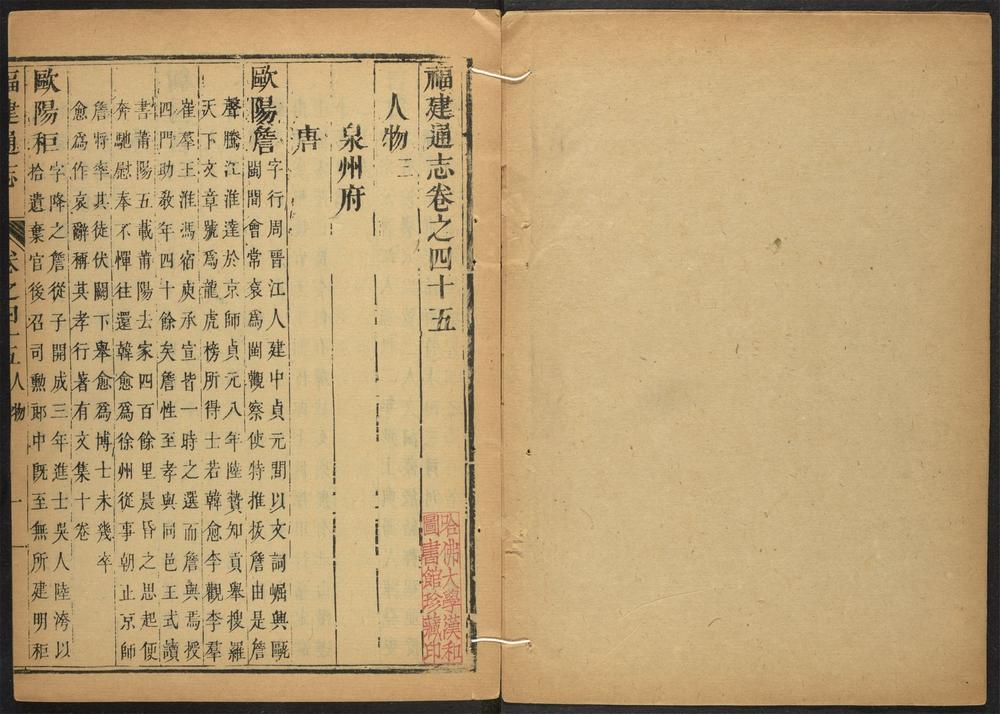 福建通志卷之四十五
人物三
泉州府
唐
歐陽詹字行周晉江人建中貞元間以文詞崛興甌
閩間會常衮爲閩觀察使特推拔詹由是詹
聲騰江淮達於京師貞元八年陸贄知貢舉搜羅
天下文章號爲龍虎榜所得士若韓愈李觀李羣
崔羣王淮馮宿庾承宣皆一時之選而詹與焉授
四門助敎年四十餘矣詹性至孝與同邑王式讀
書莆陽五載莆陽去家四百餘里晨昏之思起便
奔馳慰奉不憚往還韓愈爲徐州從事朝正京師
詹將率其徒伏闕下舉愈爲博士未幾卒
愈爲作哀辭稱其孝行著有文集十卷
歐陽秬字降之詹從子開成三年進士吳人陸洿以
拾遺棄官後召司勲郎中旣至無所建明秬
福建通志
卷之四十五人物
一
哈佛大學漢和
圖書館珍藏印